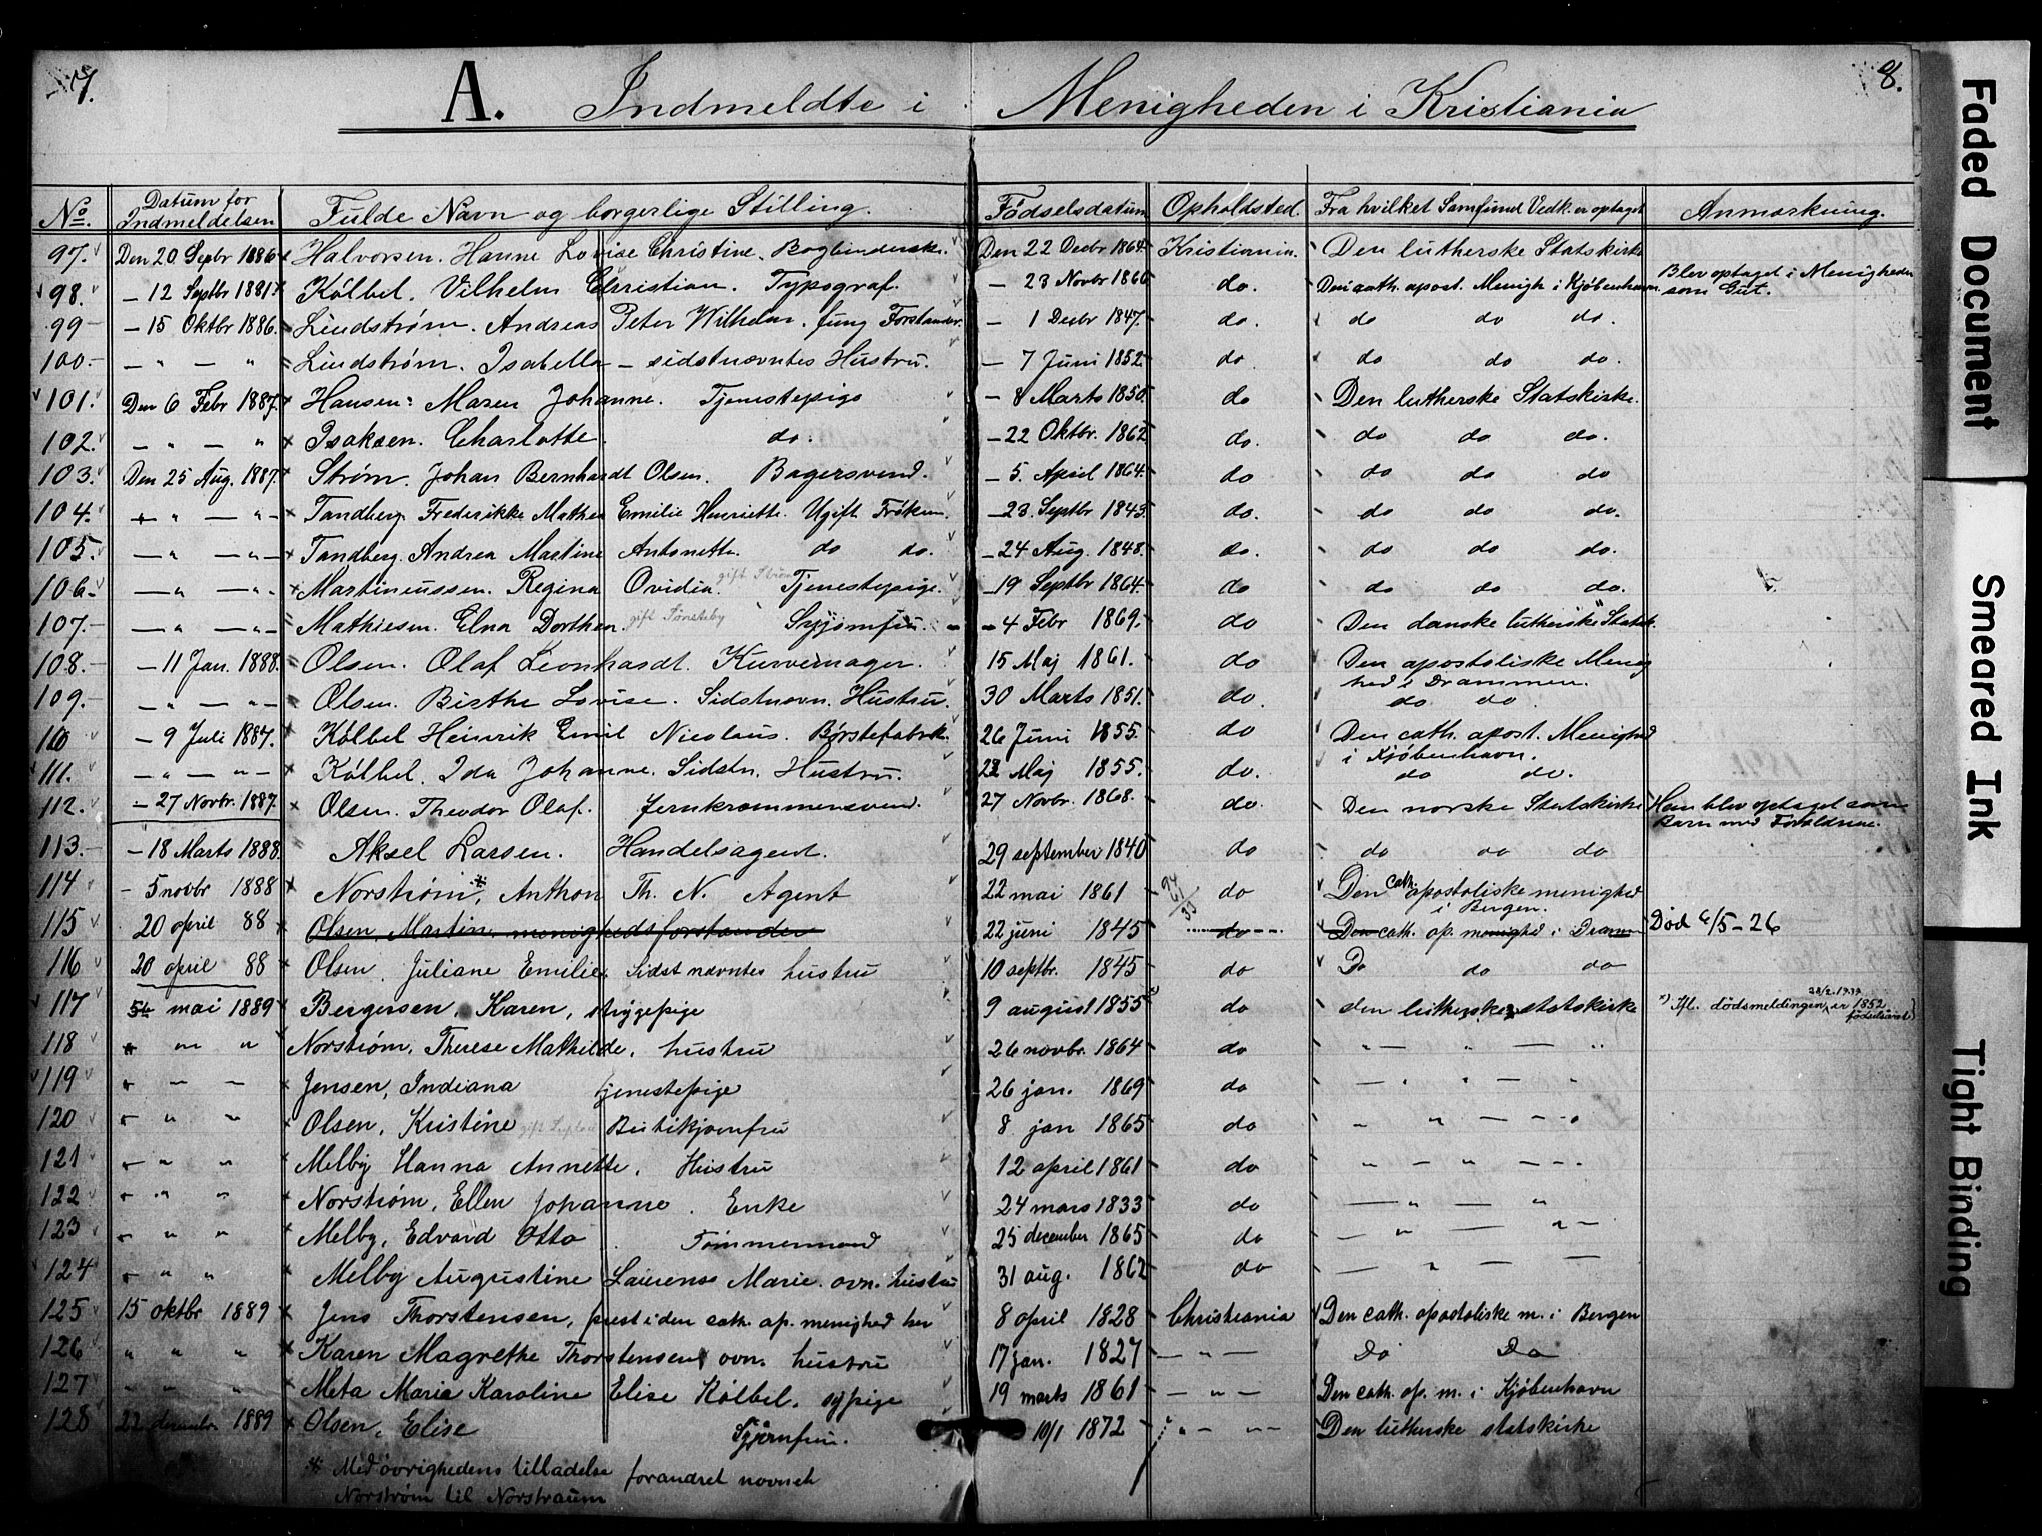 7.
8.
A. Indmeldte i Menigheden i Kristiania
No. Datum for Indmeldelsen Fulde Navn og borgerlige Stilling. Fødselsdatum Opholdsted. Fra hvilket Samfund Vedk. er optaget Anmærkning.
97. Den 20 Septbr 1886 Halvorsen. Hanne Lovise Christine. Bogbinderske. Den 22 Decbr 1864 Kristiania. Den lutherske Statskirke
98. — 12 Septbr 1881 Kölbel. Vilhelm Christian. Typograf. — 23 Novbr 1866 do. Den cath. apost. Menigh i Kjøbenhavn. Blev optaget i Menigheden som Gut.
99 — 15 Oktbr 1886. Lindstrøm. Andreas Peter Wilhelm. fung Forstander. — 1 Decbr 1847. do. do do do.
100. — " — " Lindstrøm. Isabella — sidstnævntes Hustru. — 7 Juni 1852 do do do do.
101. Den 6 Febr 1887. Hansen. Maren Johanne. Tjenestepige — 8 Marts 1850. do Den lutherske Statskirke.
102. — " — " Isaksen. Charlotte. do. — 22 Oktbr. 1862 do. do do do.
103. Den 25 Aug. 1887. Strøm. Johan Bernhardt Olsen. Bagersvend. — 5. April 1864. do do do do
104. — " — " — Tandberg. Frederikke Mathea Emilie Henriette. Ugift Frøken. — 23. Septbr 1843. do. do do do.
105. — " — " — Tandberg. Andrea Martine Antonette. do do. — 24 Aug. 1848. do. do do do.
106. — " — " — Martiniussen. Regina Ovidia. gift Tjenestepige. — 19 Septbr 1864. do do do do.
107. — " — " — Mathiesen. Elna Dorthea. gift Tønsteby Syjomfru. — 4 Febr 1869. do Den danske lutherske Statsk.
108. — 11 Jan. 1888. Olsen. Olaf Leonhardt. Kurvemager. 15 Maj 1861. do Den apostoliske Menighed i Drammen.
109. — " — " — Olsen. Birthe Lovise. Sidstnævn. Hustru. 30 Marts 1851. do. do do.
110 — 9 Juli 1887. Kölbel Heinrik Emil Nicolaus. Børstefabrk. 26 Juni 1855. do Den cath. apost. Menighed i Kjøbenhavn.
111. — " — " — Kölbel. Ida Johanne. Sidstn. Hustru. 22 Maj 1855. do. do do.
112. — 27 Novbr. 1887. Olsen. Theodor Olaf. Jernkrammersvend. 27 Novbr. 1868. do. Den norske Statskirke Han blev optaget som Barn med Forældrene.
113. — 18 Marts 1888. Aksel Larsen. Handelsagent. 29 september 1840 do do do do
114 — 5 novbr 1888 Norstrøm,* Anthon Th. N. Agent 22 mai 1861 do Den cath. apostoliske menighed i Bergen.
115 20 april 88 Olsen, Martin, menighedsforstander 22 juni 1845 do Den cath. ap. menighed i Dramm Død 6/5 - 26
116 20 april 88 Olsen, Juliane Emilie, Sidst nævntes hustru 10 septbr. 1845 do Do do do
117 5te mai 1889 Bergersen, Karen, strygepige 9 august 1855 do den lutherske statskirke *) Ifl. dødsmeldingen 28/2 1939 er 1852 fødselsåret)
118 " — " Norstrøm, Therese Mathilde, hustru 26 novbr. 1864 do " — " — "
119 " — Jensen, Indiana tjenestepige 26 jan. 1869 do " — " — "
120 " " — Olsen, Kristine gift Butikjomfru 8 jan 1865 do " " — " —
121 " " Melby Hanna Annette, Hustru 12 april 1861 do " — " — —
122 " " Norstrøm, Ellen Johanne. Enke 24 mars 1833 do — " — "
123 " " Melby, Edvard Otto Tømmermand 25 december 1865 do — " — " —
124 " " Melby Augustine Laurense Marie. ovn. hustru 31 aug. 1862 do — " — —
125 15 oktbr 1889 Jens Thorstensen, prest i den cath. ap. menighed her 8 april 1828 Christiania Den cath. apostoliske m. i Bergen
126 " " " Karen Magrethe Thorstensen, ovn. hustru 17 jan. 1827 — " — Do Do
127 " " " Meta Marie Karoline Elise Kölbel. sypige 19 marts 1861 — " — Den cath. ap. m. i Kjøbenhavn
128 22 decembr. 1889 Olsen, Elise Syjomfru. 10/1 1872 " — " — Den lutherske statskirke
* Med øvrighedens tilladelse forandret navnet
Norstrøm til Norstraum
Faded Document
Smeared Ink
Tight Binding